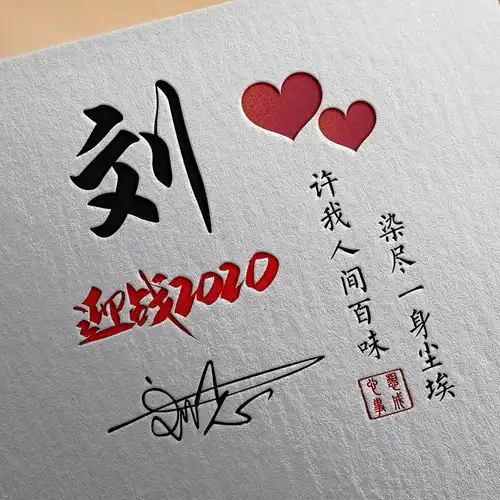 刘
迎战2020
染尽一身尘埃
许我人间百味
心想事成